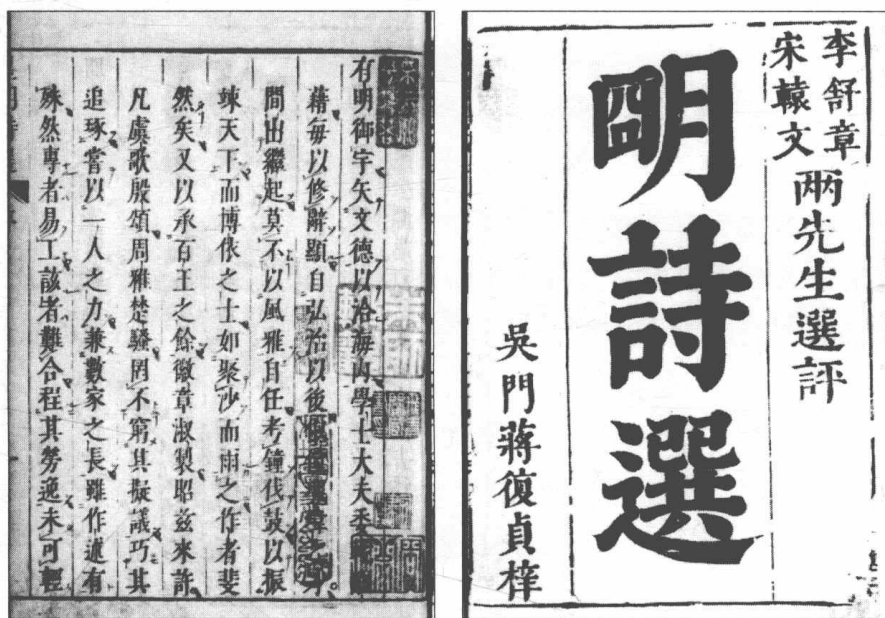 李舒章
宋轅文
兩先生選評
明詩選
吳門蔣復貞梓
有明御宇矢文德以洽海內學士大夫
藉每以修辭顯自弘治以後
間出繼起莫不以風雅自任考鐘伐鼓以振
竦天下而博依之士如聚沙而雨之作者斐
然矣又以承百王之餘徽章淑製昭兹來許
凡虞歌殷頌周雅楚騷罔不窮其擬議巧其
追琢嘗以一人之力兼數家之長雖作述有
殊然專者易工該者難合程其勞逸未可輕